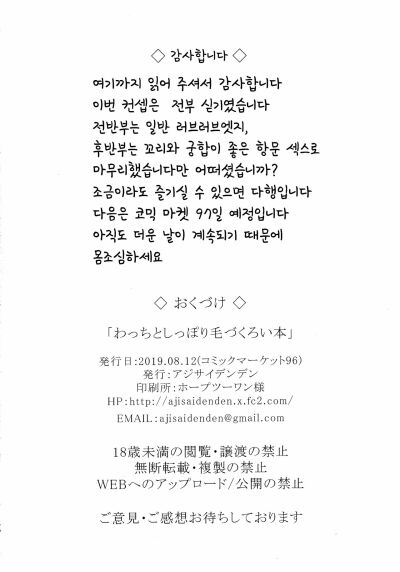 ◇ 감사합니다 ◇
여기까지 읽어 주셔서 감사합니다
이번 컨셉은 전부 싣기였습니다
전반부는 일반 러브러브엣지,
후반부는 꼬리와 궁합이 좋은 항문 섹스로
마무리했습니다만 어떠셨습니까?
조금이라도 즐기실 수 있으면 다행입니다
다음은 코믹 마켓 97일 예정입니다
아직도 더운 날이 계속되기 때문에
몸조심하세요
◇ おくづけ ◇
「わっちとしっぽり毛づくろい本」
発行日:2019.08.12(コミックマーケット96)
発行:アジサイデンデン
印刷所:ホープツーワン様
HP:http://ajisaidenden.x.fc2.com/
EMAIL:ajisaidenden@gmail.com
18歳未満の閲覧・譲渡の禁止
無断転載・複製の禁止
WEBへのアップロード/公開の禁止
ご意見・ご感想お待ちしております